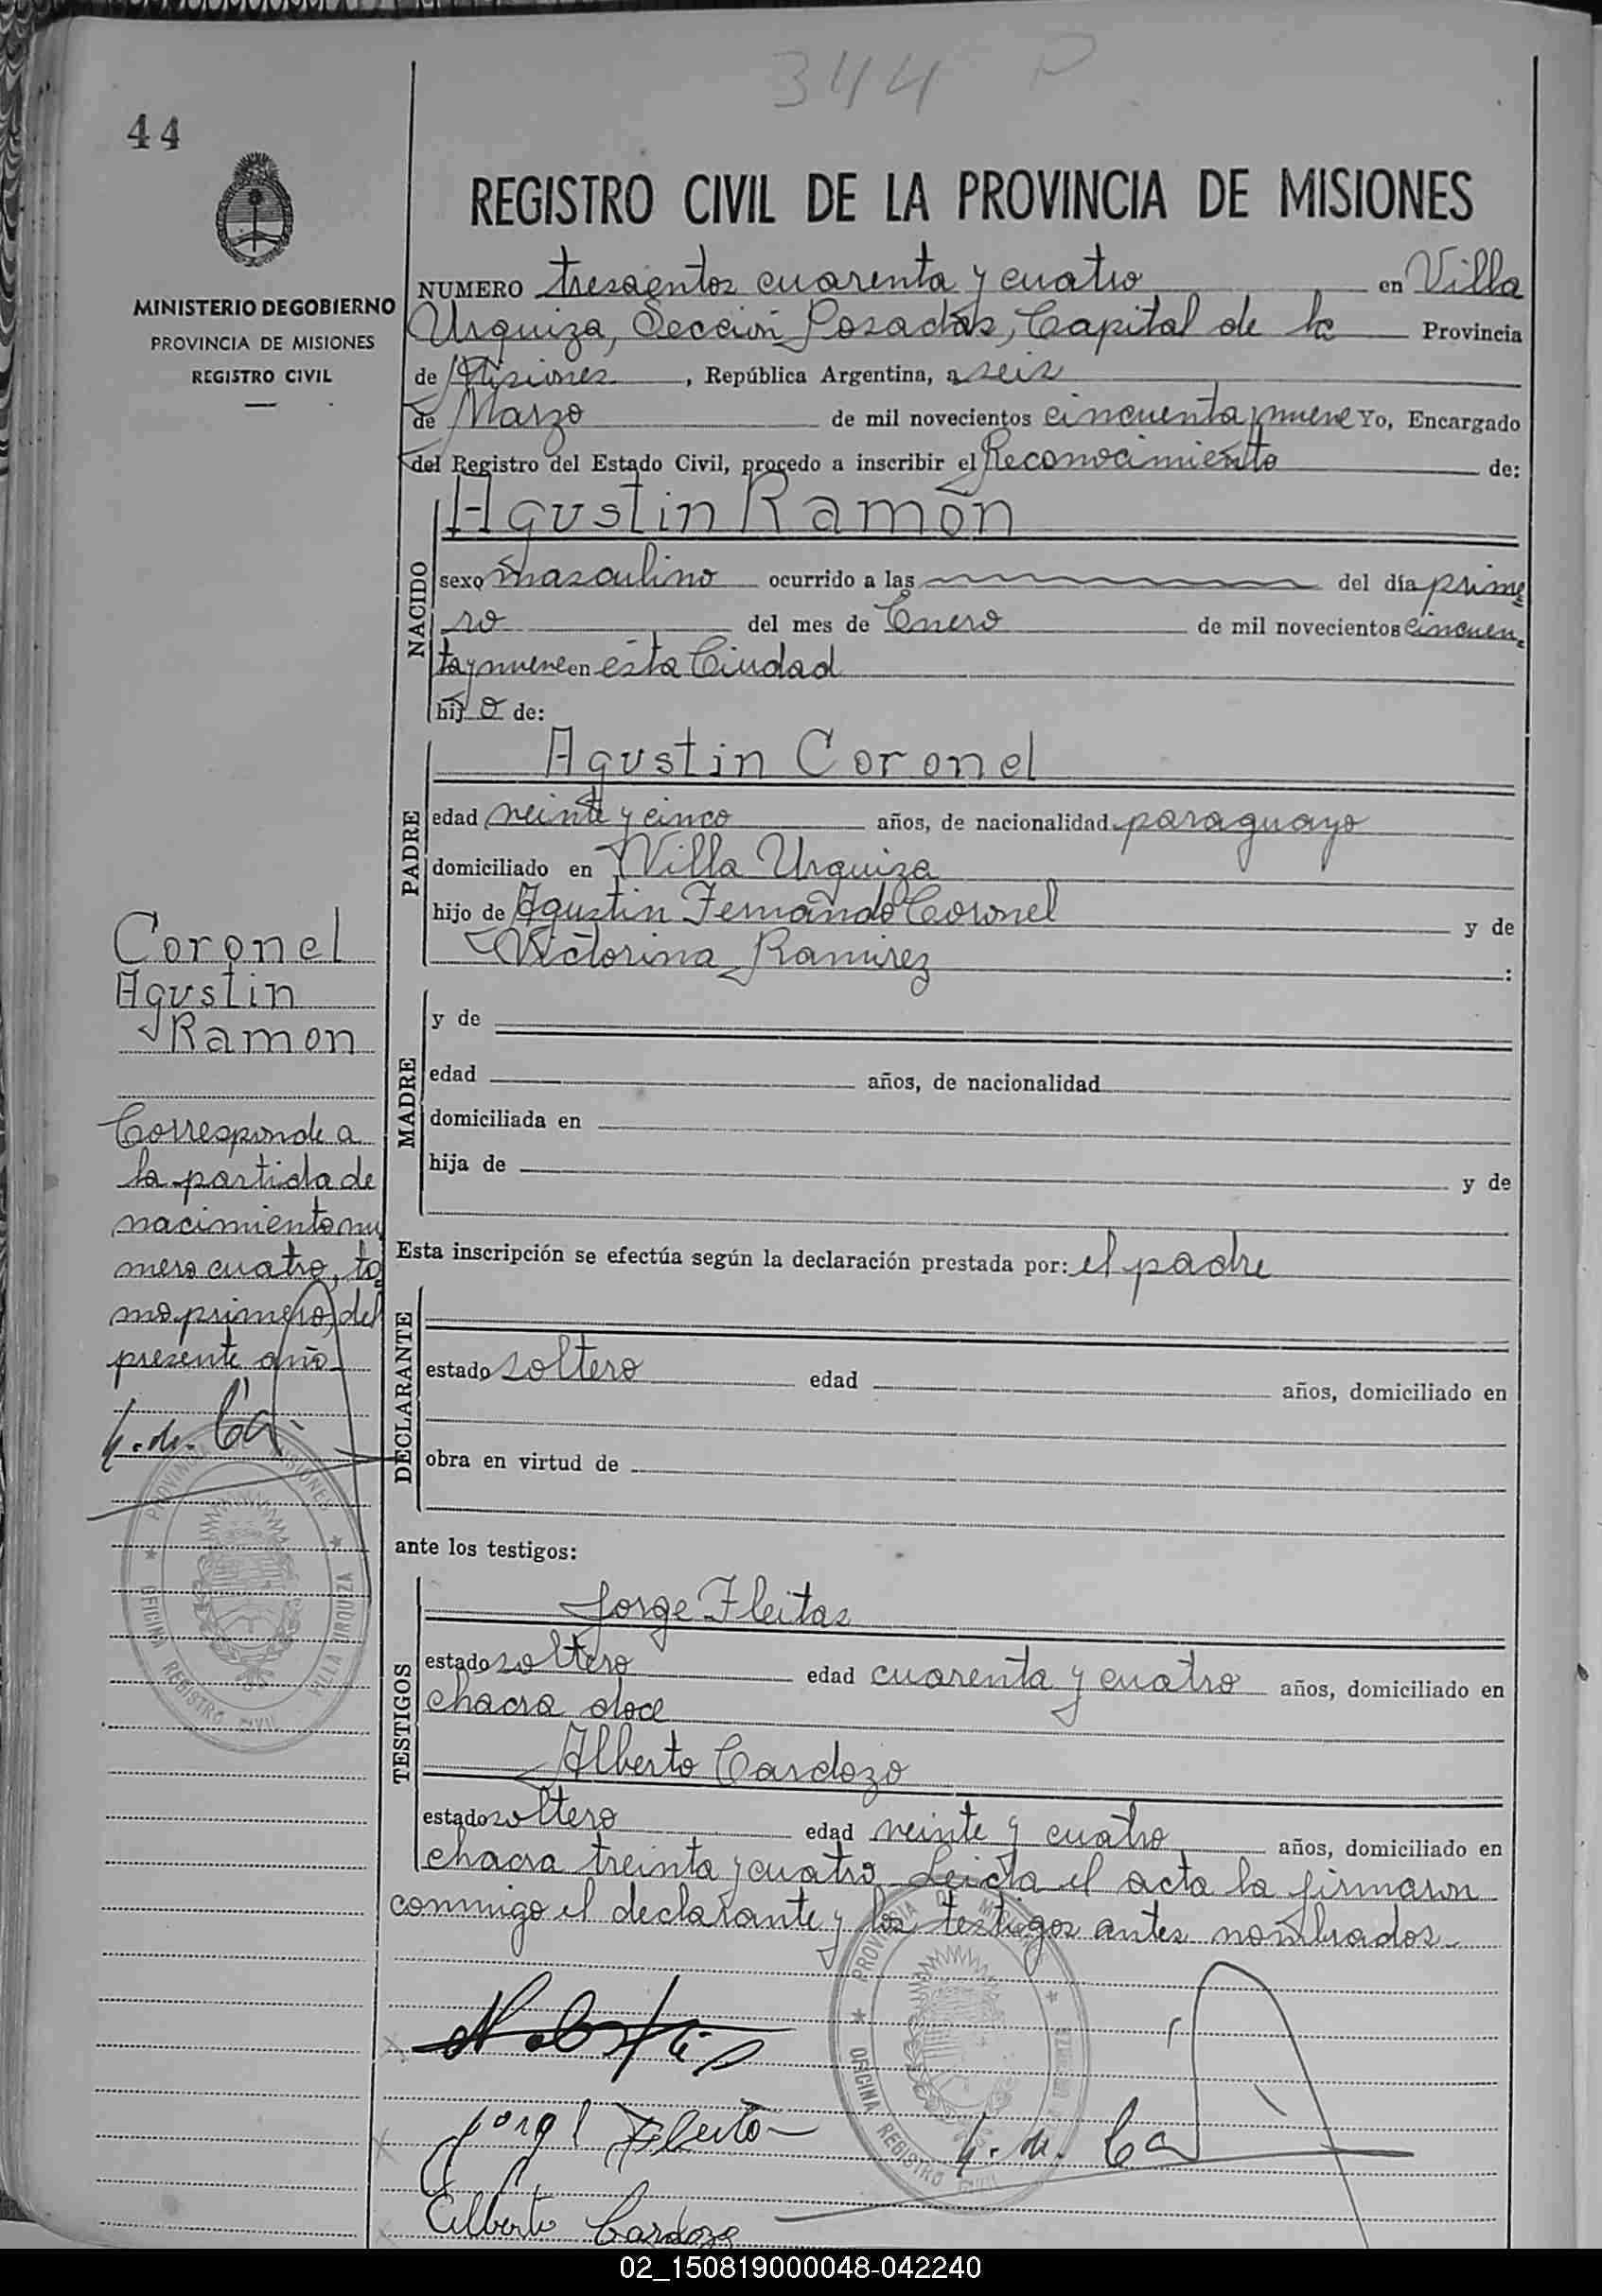 344 P
44
REGISTRO CIVIL DE LA PROVINCIA DE MISIONES
MINISTERIO DE GOBIERNO
PROVINCIA DE MISIONES
REGISTRO CIVIL
NUMERO trescientos cuarenta y cuatro en Villa
Urquiza, Sección Posadas, Capital de la Provincia
de Misiones, República Argentina, a seis
de Marzo de mil novecientos cincuenta y nueve Yo, Encargado
del Registro del Estado Civil, procedo a inscribir el Reconocimiento de:
NACIDO
Agustin Ramón
sexo masculino ocurrido a las del día prime
ro del mes de Enero de mil novecientos cincuen
ta y nueve en esta Ciudad
hijo de:
PADRE
Agustin Coronel
edad veinte y cinco años, de nacionalidad paraguayo
domiciliado en Villa Urquiza
hijo de Agustin Fernando Coronel y de
Victorina Ramirez :
MADRE
y de
edad años, de nacionalidad
domiciliada en
hija de y de
Esta inscripción se efectúa según la declaración prestada por: el padre
DECLARANTE
estado soltero edad años, domiciliado en
obra en virtud de
ante los testigos:
TESTIGOS
Jorge Fleitas
estado soltero edad cuarenta y cuatro años, domiciliado en
chacra doce
Alberto Cardozo
estado soltero edad veinte y cuatro años, domiciliado en
chacra treinta y cuatro. Leida el acta la firmaron
conmigo el declarante y los testigos antes nombrados.
Coronel
Agustin
Ramon
Corresponde a
la partida de
nacimiento nu
mero cuatro, to
mo primero, del
presente año
PROVINCIA DE MISIONES
OFICINA REGISTRO CIVIL VILLA URQUIZA
PROVINCIA DE MISIONES
OFICINA REGISTRO CIVIL
Jorge Fleita
Alberto Cardozo
02_150819000048-042240